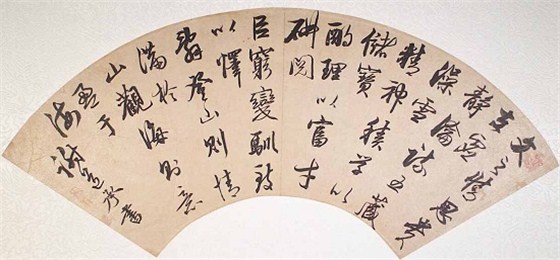 文之情思貴
在虛
靜疏瀹五藏
澡雪
精神積學以
儲寶
酌理以富才
研閱
㠯窮變馴致
以懌
辭登山則情
滿於
山觀海則意
盈于
海 許 書